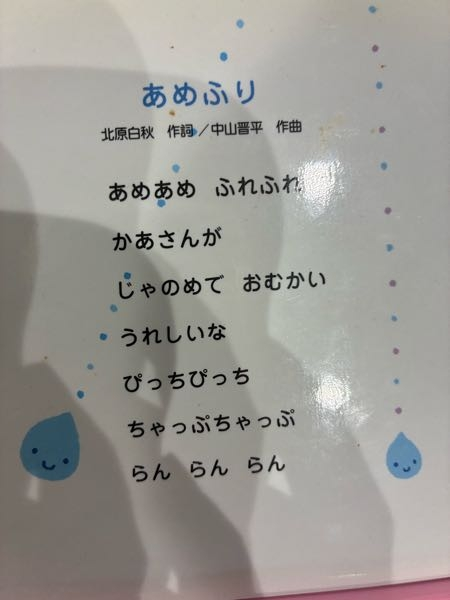 あめふり
北原白秋 作詞／中山晋平 作曲
あめあめ ふれふれ
かあさんが
じゃのめで おむかい
うれしいな
ぴっちぴっち
ちゃっぷちゃっぷ
らん らん らん